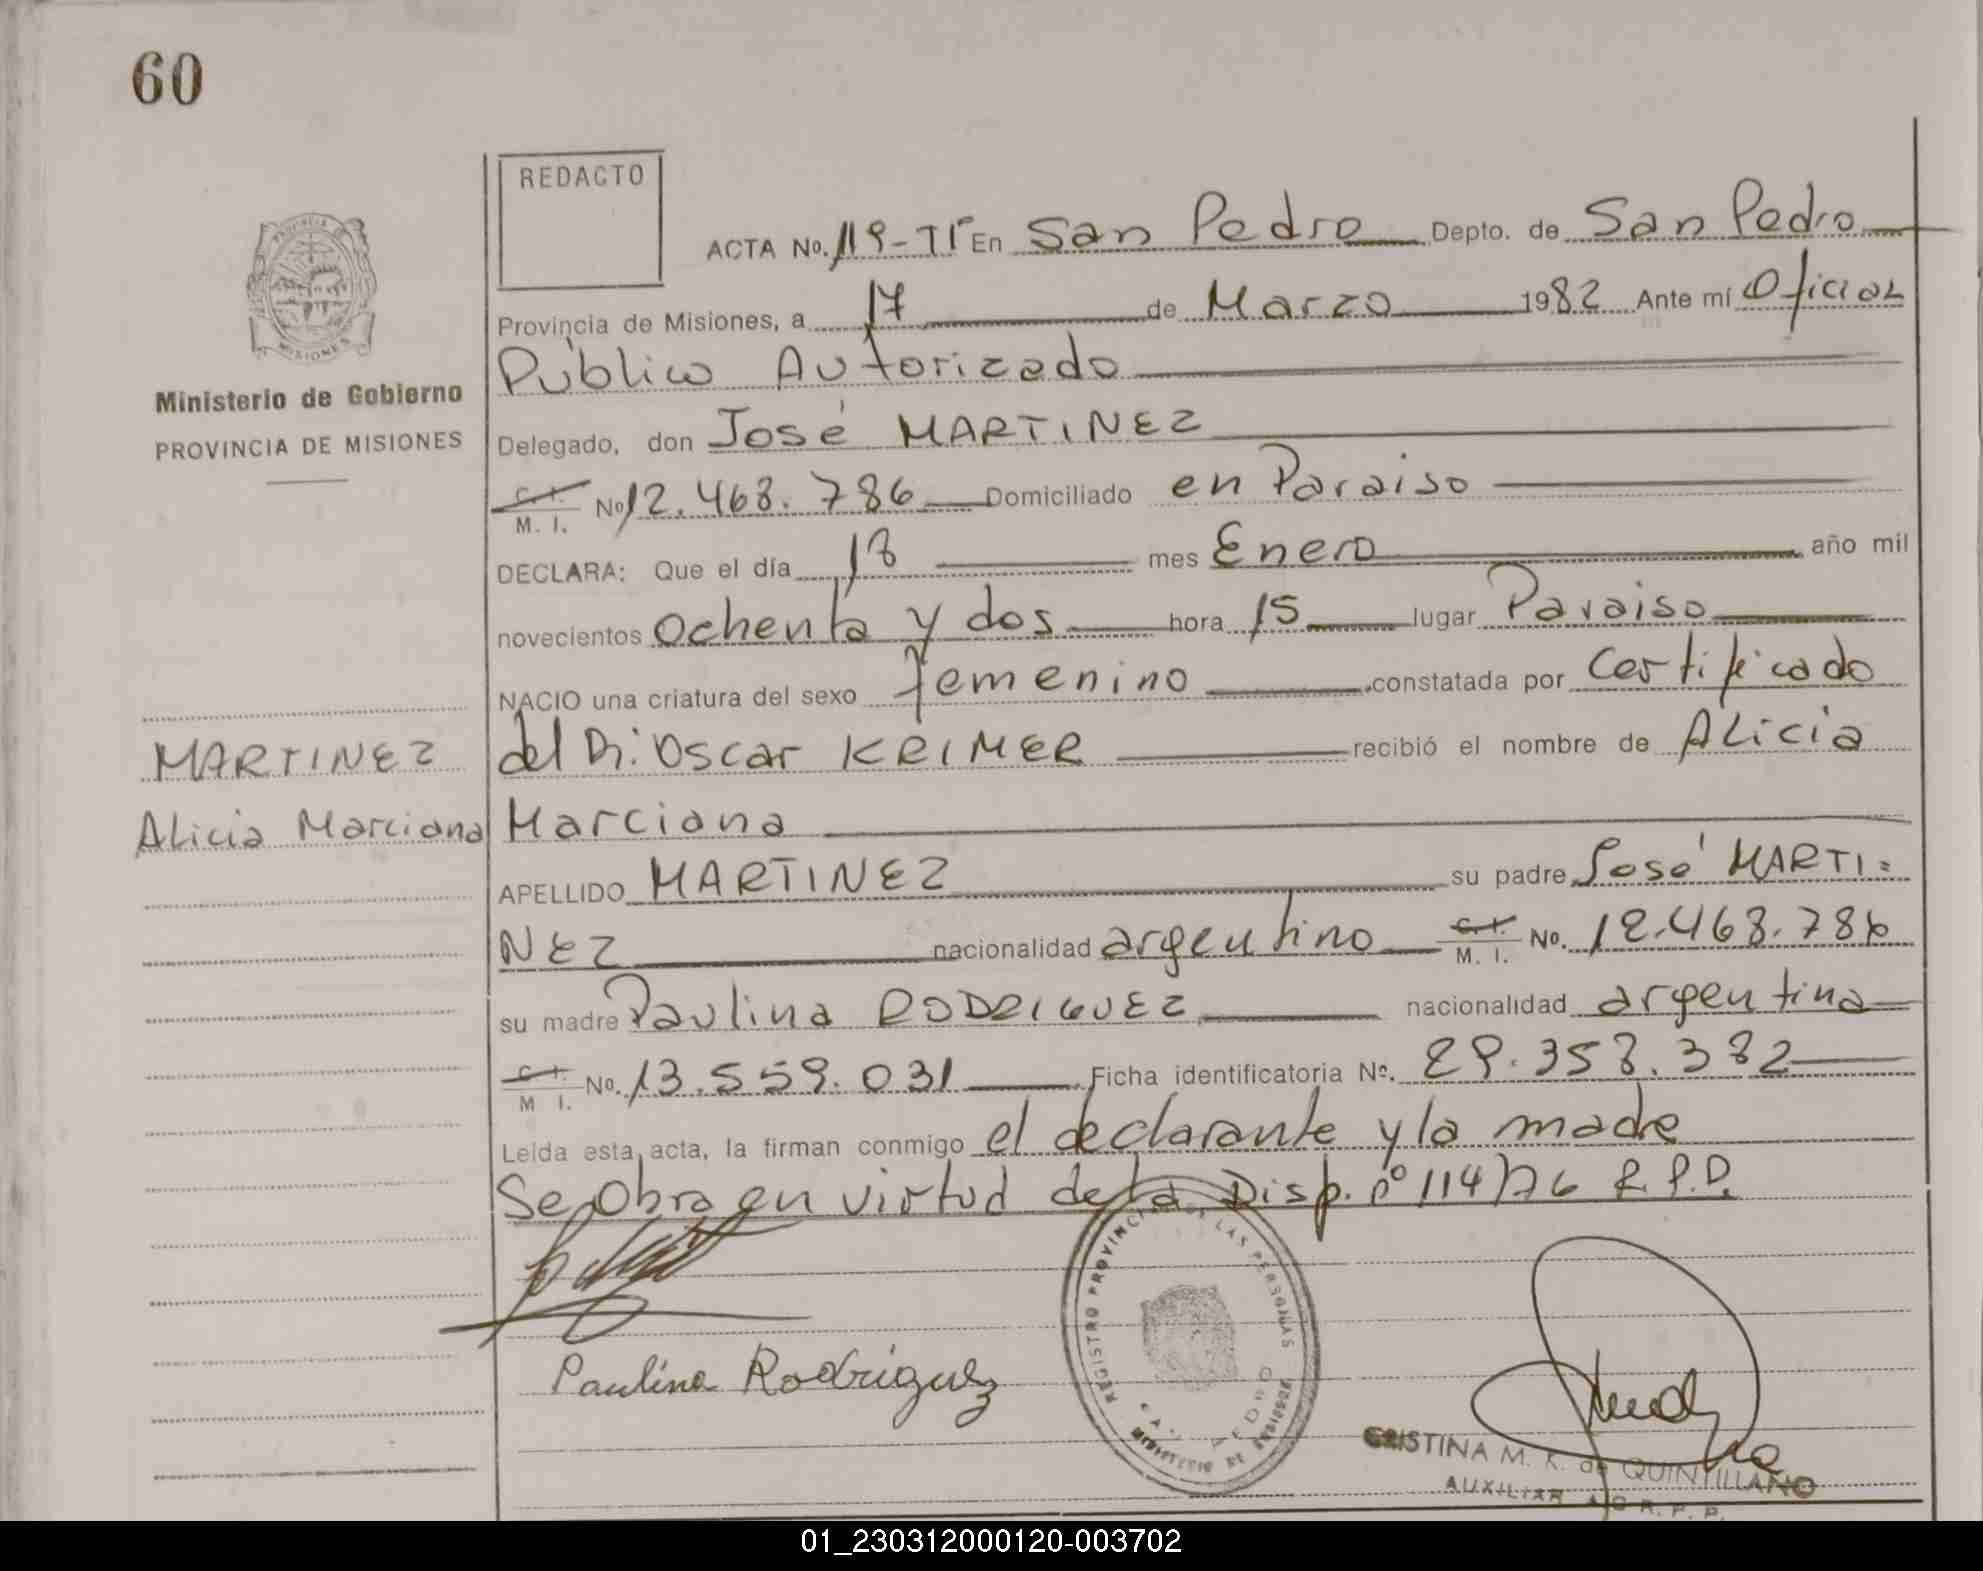 60
REDACTO
ACTA No. 119-TI En San Pedro Depto. de San Pedro
Provincia de Misiones, a 17 de Marzo 1982 Ante mí Oficial
Público Autorizado
Ministerio de Gobierno
PROVINCIA DE MISIONES
Delegado, don José MARTINEZ
C. I.
M. I. No 12.468.786 Domiciliado en Paraiso
DECLARA: Que el día 18 mes Enero año mil
novecientos ochenta y dos hora 15 lugar Paraiso
NACIO una criatura del sexo femenino constatada por Certificado
MARTINEZ
del Dr. Oscar KRIMER recibió el nombre de Alicia
Alicia Marciana
Marciana
APELLIDO MARTINEZ su padre José MARTI=
NEZ nacionalidad argentino C. I. M. I. No. 12.468.786
su madre Paulina RODRIGUEZ nacionalidad argentina
C. I. M I. No. 13.559.031 Ficha identificatoria No. 29.358.382
Leída esta acta, la firman conmigo el declarante y la madre
Se Obra en virtud de la Disp. nº 114/76 R.P.D.
REGISTRO PROVINCIAL DE LAS PERSONAS
SAN PEDRO
MINISTERIO DE GOBIERNO
Paulina Rodriguez
CRISTINA M. K. de QUINTILLANO
AUXILIAR R. P. P.
01_230312000120-003702